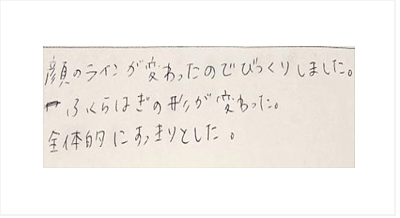 顔のラインが変わったのでびっくりしました。
ふくらはぎの形が変わった。
全体的にすっきりとした。